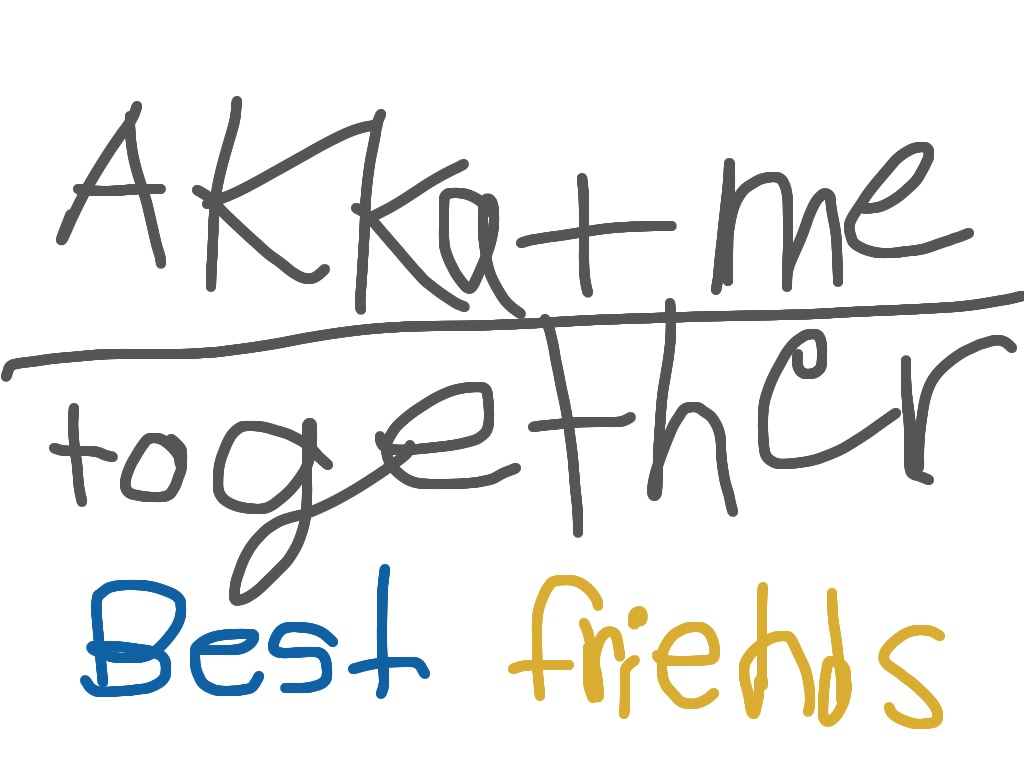 AKka + me
together
Best friends